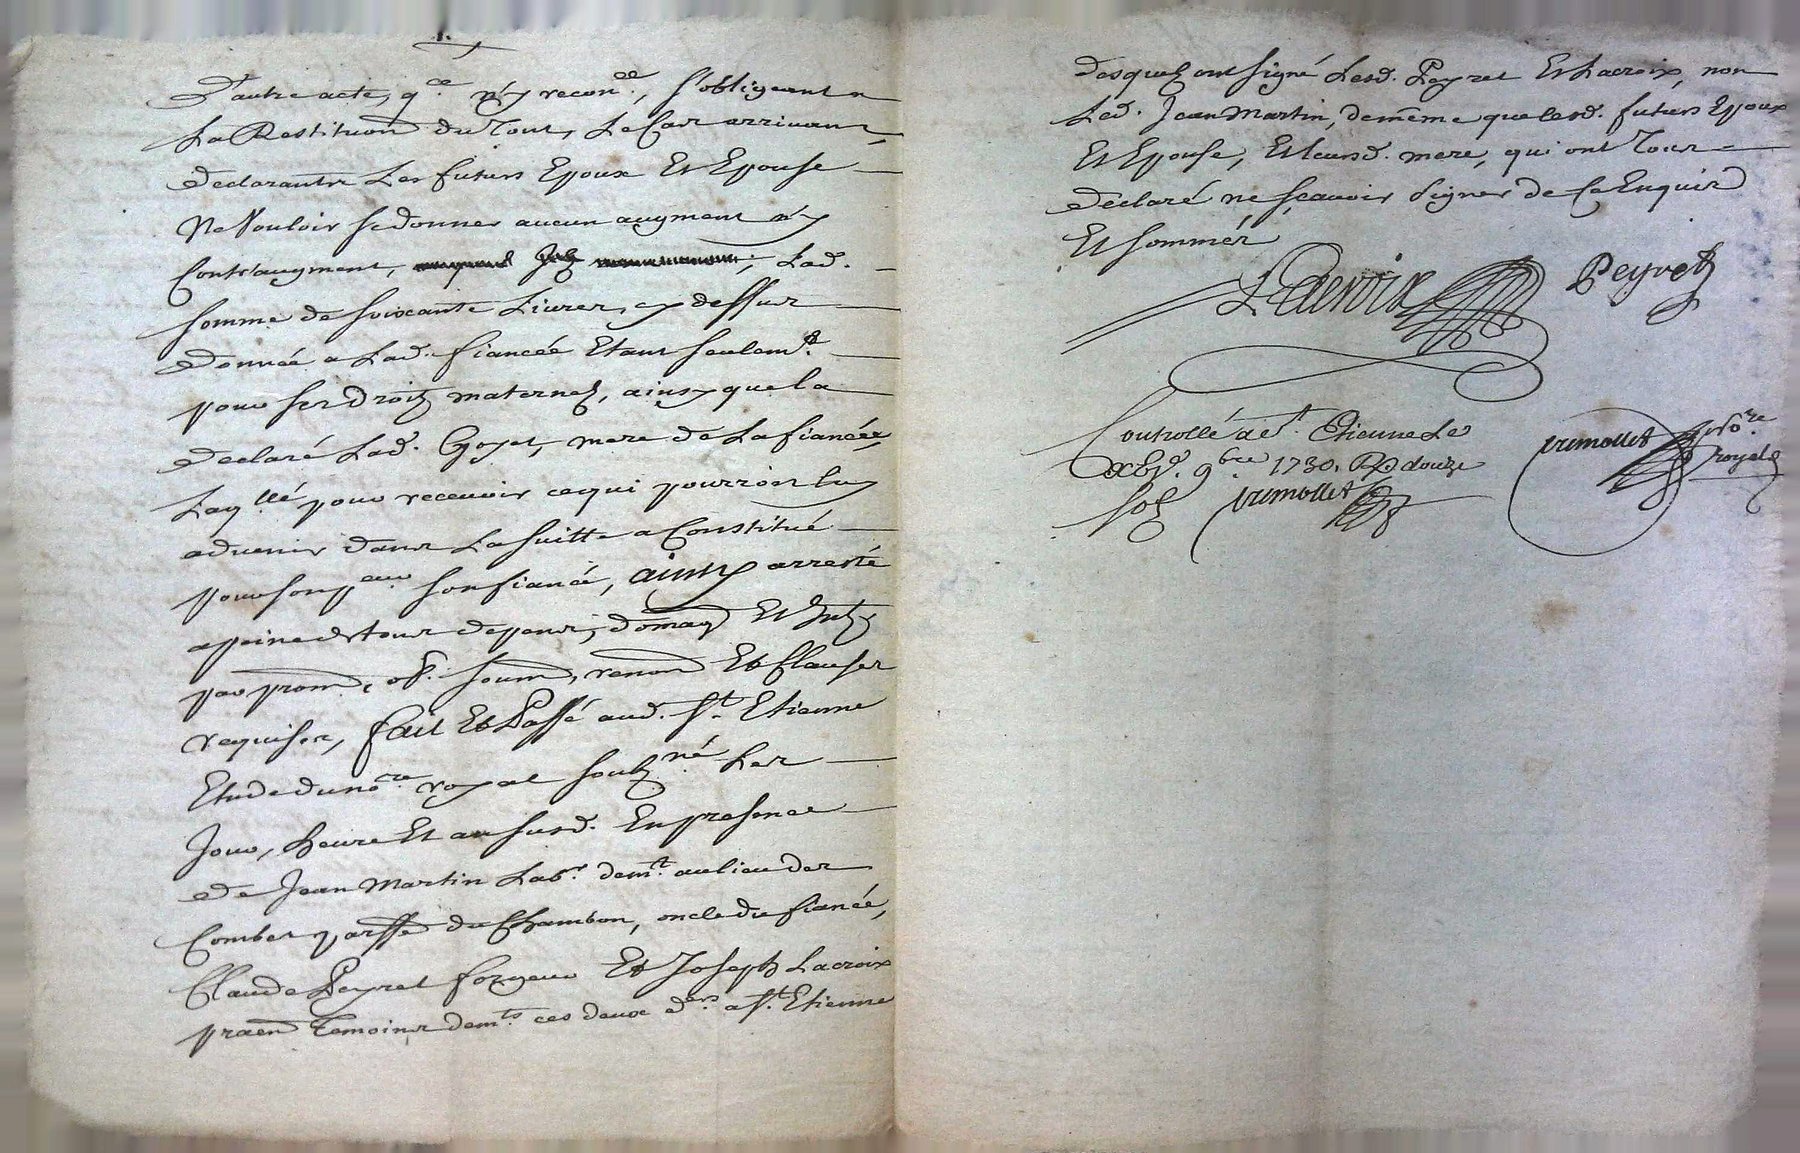 D'autre acte, q.ce ny recon.ce, s'obligeant a
La Restituon du Tout, Le Cas arrivant,
declarants Les futurs Epoux Et Epouse
Ne Vouloir se donner aucun augment ny
Contr'augment, Lad.
somme de soixante Livres, cy dessus
donnée a Lad. fiancée Etant seulem.t
pour ses droitz maternelz, ainsy que la
declaré Lad. Goyet, mere de La fiancée,
Laq.llé pour recevoir ce qui pourroit luy
advenir dans La suitte a Constitué
pour son p.eur son fiancé, ainsy arresté
a peine de tous depens, domag Et Intz
par prom, ob. soum, renon Et Clauses
requises, fait Et Passé aud. S.t Etienne
Etude du no.re royal soubz.né Les
Jour, heure Et an susd. En presence
de Jean Martin Lab.r dem.t au lieu des
Combes parsse du Chambon, oncle du fiancé,
Claude Peyret forgeur Et Joseph Lacroix
praen Temoins dem.ts ces deux d.ers a S.t Etienne
desquelz ont signé Lesd. Peyret Et Lacroix, non
Led. Jean Martin, de même que lesd. futurs Epoux
Et Epouse, Et leursd. mere, qui ont Tous
declaré ne sçavoir signer de Ce Enquis
Et sommés
Lacroix Peyret
Controllé a S.t Etienne Le
xv.e 9.bre 1730. R douze
solz